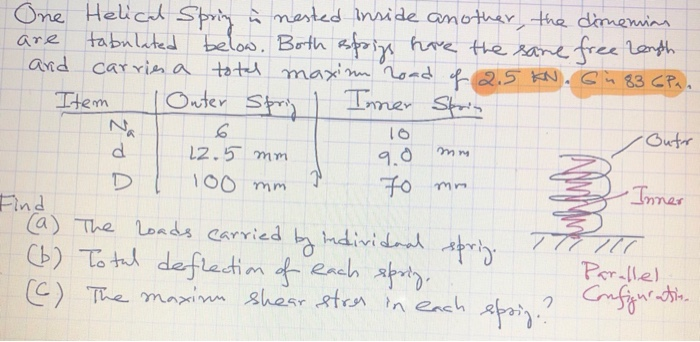 One Helical Spring is nested inside another, the dimensions
are tabulated below. Both springs have the same free length
and carries a total maximum load of 2.5 kN. G is 83 GPa.
Item Outer Spring Inner Spring
Na 6 10
d 12.5 mm 9.0 mm
D 100 mm 70 mm
Outer
Inner
Parallel
Configuration
Find
(a) The loads carried by individual spring.
(b) Total deflection of each spring.
(c) The maximum shear stress in each spring.?